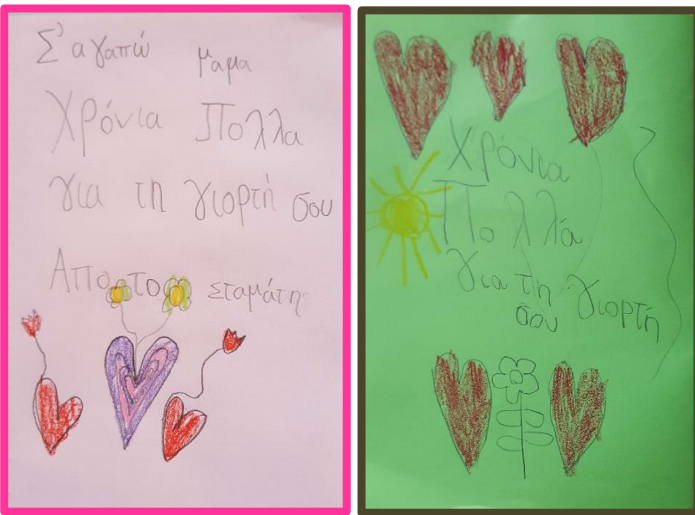 Σ' αγαπώ μαμα
Χρόνια Πολλα
για τη γιορτή σου
Απο το σταμάτη
Χρόνια
Πολλά
για τη γιορτή
σου